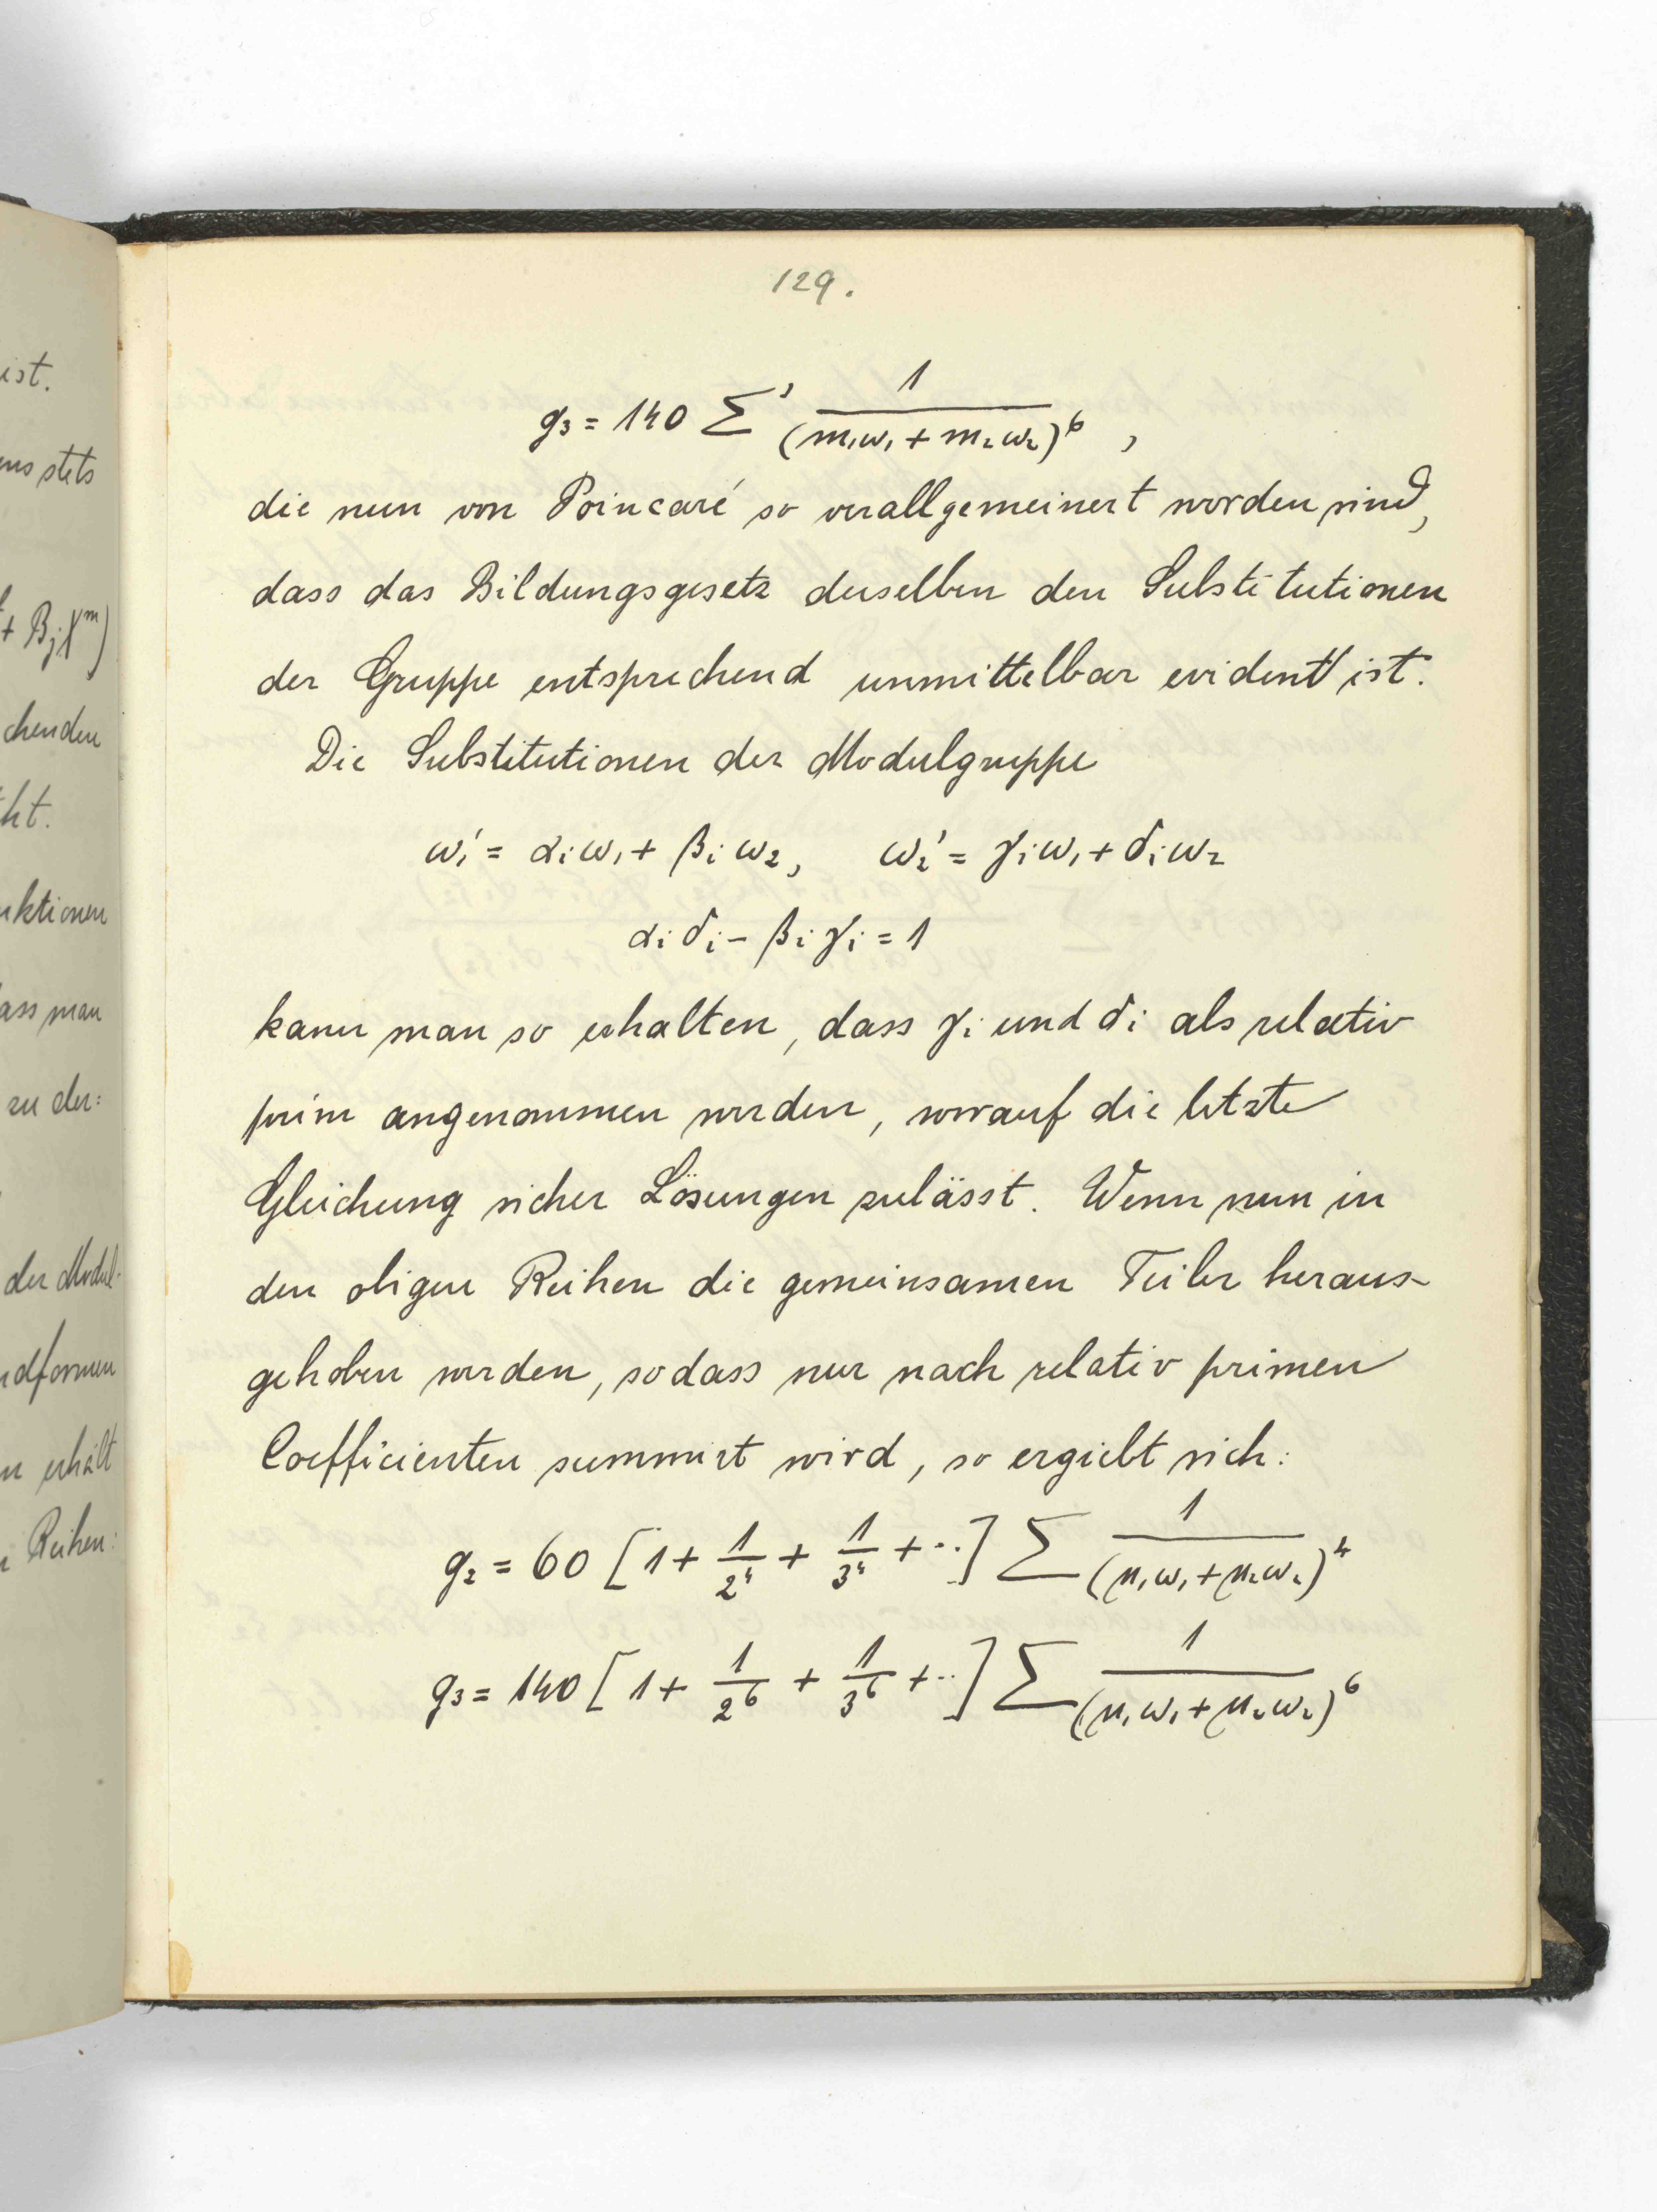 ist.
stets
+ Bⱼγᵐ)
chenden
ht.
ktionen
ass man
zu der:
der Modul-
dformen
n erhält
Reihen:
129.
g₃ = 140 Σ' 1/(m₁ω₁ + m₂ω₂)⁶ ,
die nun von Poincaré so verallgemeinert worden sind,
dass das Bildungsgesetz derselben den Substitutionen
der Gruppe entsprechend unmittelbar evident ist.
Die Substitutionen der Modulgruppe
ω₁' = αᵢω₁ + βᵢω₂, ω₂' = γᵢω₁ + δᵢω₂
αᵢδᵢ − βᵢγᵢ = 1
kann man so erhalten, dass γᵢ und δᵢ als relativ
prim angenommen werden, worauf die letzte
Gleichung sicher Lösungen zulässt. Wenn nun in
den obigen Reihen die gemeinsamen Teiler heraus-
gehoben werden, sodass nur nach relativ primen
Coefficienten summirt wird, so ergiebt sich:
g₂ = 60 [1 + 1/2⁴ + 1/3⁴ + ··] Σ 1/(μ₁ω₁ + μ₂ω₂)⁴
g₃ = 140 [1 + 1/2⁶ + 1/3⁶ + ··] Σ 1/(μ₁ω₁ + μ₂ω₂)⁶